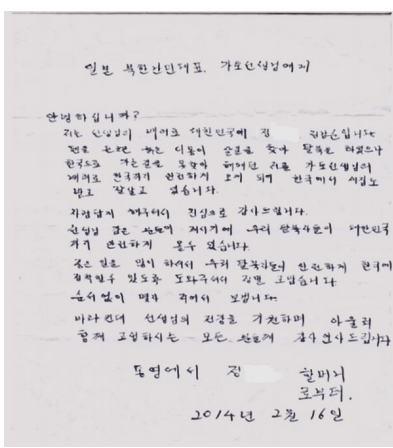 일본 북한난민대표. 가토선생님에게
안녕하십니까?
저는 선생님의 배려로 대한민국에 정
한국으로 가는길을 못찾아 헤매던 저를 가토선생님의
배려로 한국까지 안전하게 오게 되여 한국에서 시집도
받고 잘살고 있습니다.
진심으로 감사드립니다.
선생님 같은 분들이 계시기에 우리 탈북자들이 대한민국
까지 안전하게 올수 있습니다.
좋은 일을 많이 하셔서 우리 탈북자들이 안전하게 한국에
정착할수 있도록 도와주셔서 정말 고맙습니다
순서없이 몇자 적어서 보냅니다.
바라건대 선생님의 건강을 기원하며 아울러
함께 고생하시는 모든 분들께 감사 인사드립니다
통영에서 정 할머니
로부터.
2014년 2월 16일